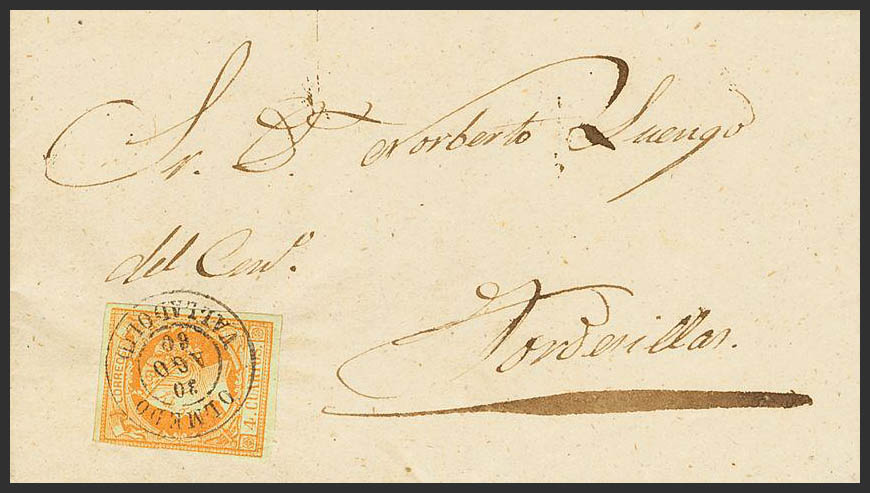 Sr. D. Norberto Luengo
del Com.º
Tordesillas.
CORREOS
4 CUART
OLMEDO
30
AGO
60
VALLADOLID